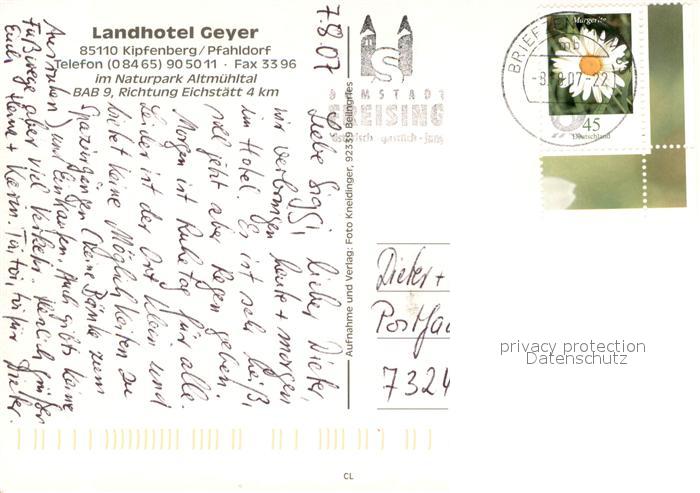 Landhotel Geyer
85110 Kipfenberg/Pfahldorf
Telefon (0 84 65) 90 50 11 · Fax 33 96
im Naturpark Altmühltal
BAB 9, Richtung Eichstätt 4 km
7.8.07
Liebe Siggi, lieber Dieter,
wir verbringen heute + morgen
im Hotel. Es ist sehr heiß,
soll jetzt aber Regen geben.
Morgen ist Ruhetag für alle.
Leider ist der Ort klein und
bietet keine Möglichkeiten zu
Spaziergängen (keine Bänke zum
Ausruhen) und Einkaufen. Auch gibts keine
Fußwege aber viel Verkehr. Herzlich grüßen
Euch + Karin. Toi, toi, toi für Dieter.
Aufnahme und Verlag: Foto Kneidinger, 92339 Beilngries
DOMSTADT
FREISING
BRIEFZENTRUM
mb
-8.07-22
Margerite
45
Deutschland
Dieter +
Postfac
7324
privacy protection
Datenschutz
CL